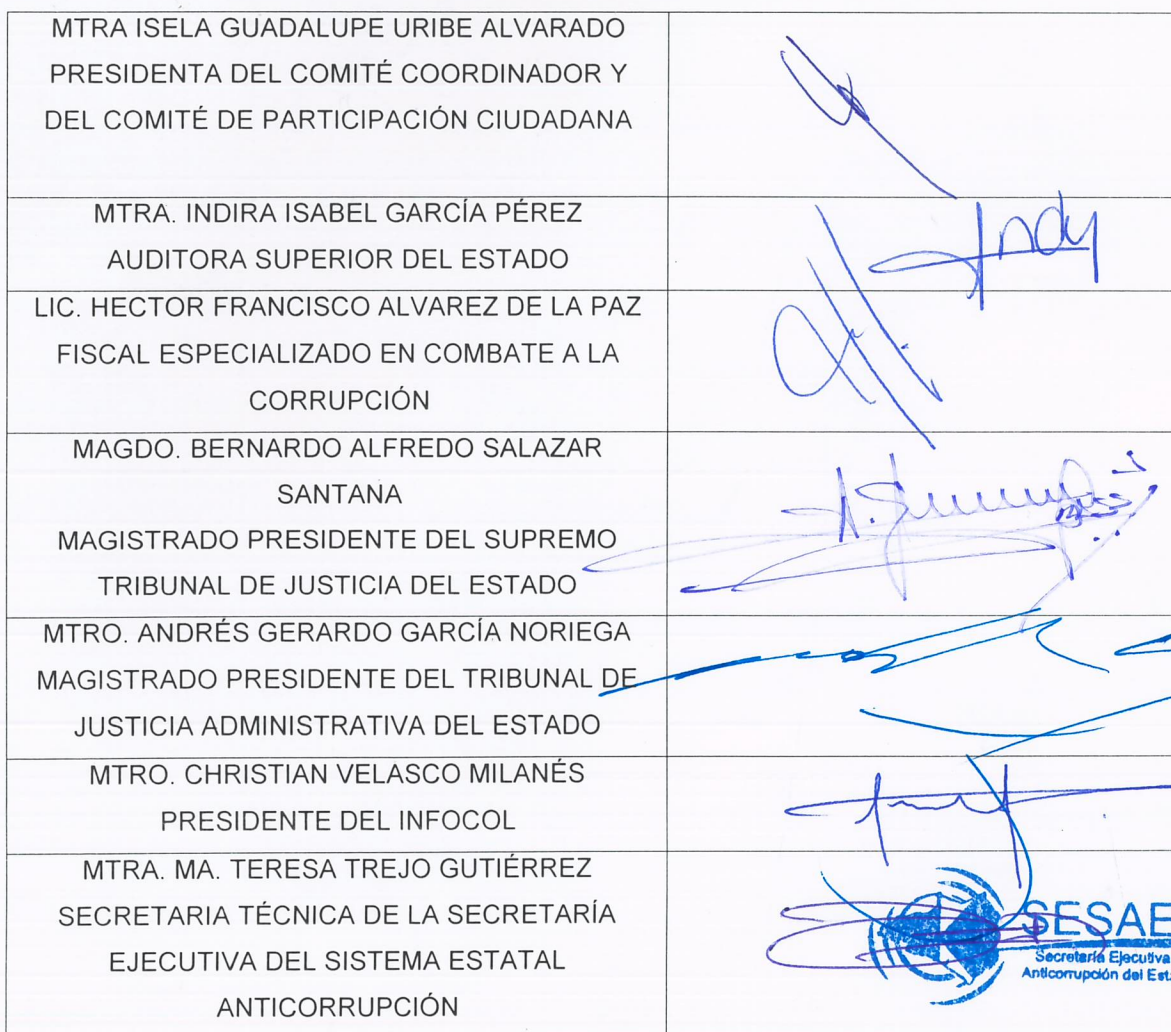 MTRA ISELA GUADALUPE URIBE ALVARADO
PRESIDENTA DEL COMITÉ COORDINADOR Y
DEL COMITÉ DE PARTICIPACIÓN CIUDADANA
MTRA. INDIRA ISABEL GARCÍA PÉREZ
AUDITORA SUPERIOR DEL ESTADO
Indy
LIC. HECTOR FRANCISCO ALVAREZ DE LA PAZ
FISCAL ESPECIALIZADO EN COMBATE A LA
CORRUPCIÓN
MAGDO. BERNARDO ALFREDO SALAZAR
SANTANA
MAGISTRADO PRESIDENTE DEL SUPREMO
TRIBUNAL DE JUSTICIA DEL ESTADO
MTRO. ANDRÉS GERARDO GARCÍA NORIEGA
MAGISTRADO PRESIDENTE DEL TRIBUNAL DE
JUSTICIA ADMINISTRATIVA DEL ESTADO
MTRO. CHRISTIAN VELASCO MILANÉS
PRESIDENTE DEL INFOCOL
MTRA. MA. TERESA TREJO GUTIÉRREZ
SECRETARIA TÉCNICA DE LA SECRETARÍA
EJECUTIVA DEL SISTEMA ESTATAL
ANTICORRUPCIÓN
SESAE
Secretaría Ejecutiva
Anticorrupción del Est